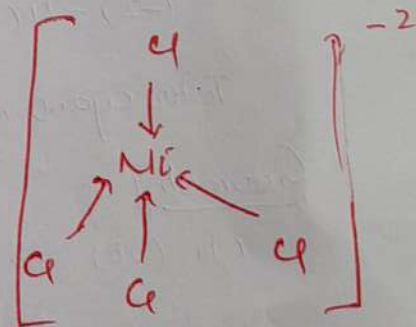 -2
Cl
Ni
Cl Cl Cl